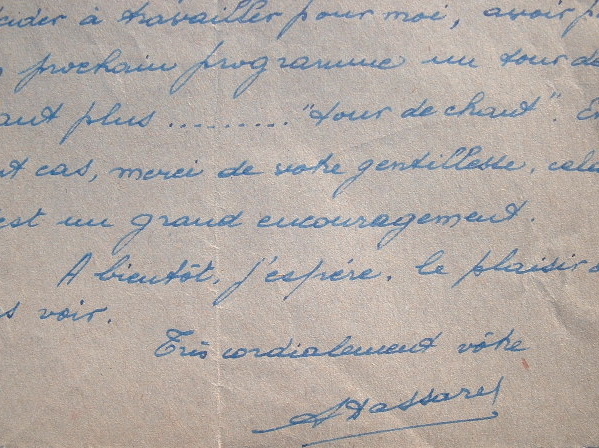 cider à travailler pour moi, avoir p
prochain programme un tour de
ant plus ......... "tour de chant". En
t cas, merci de votre gentillesse, cela
est un grand encouragement.
A bientôt, j'espère, le plaisir d
s voir.
Très cordialement vôtre